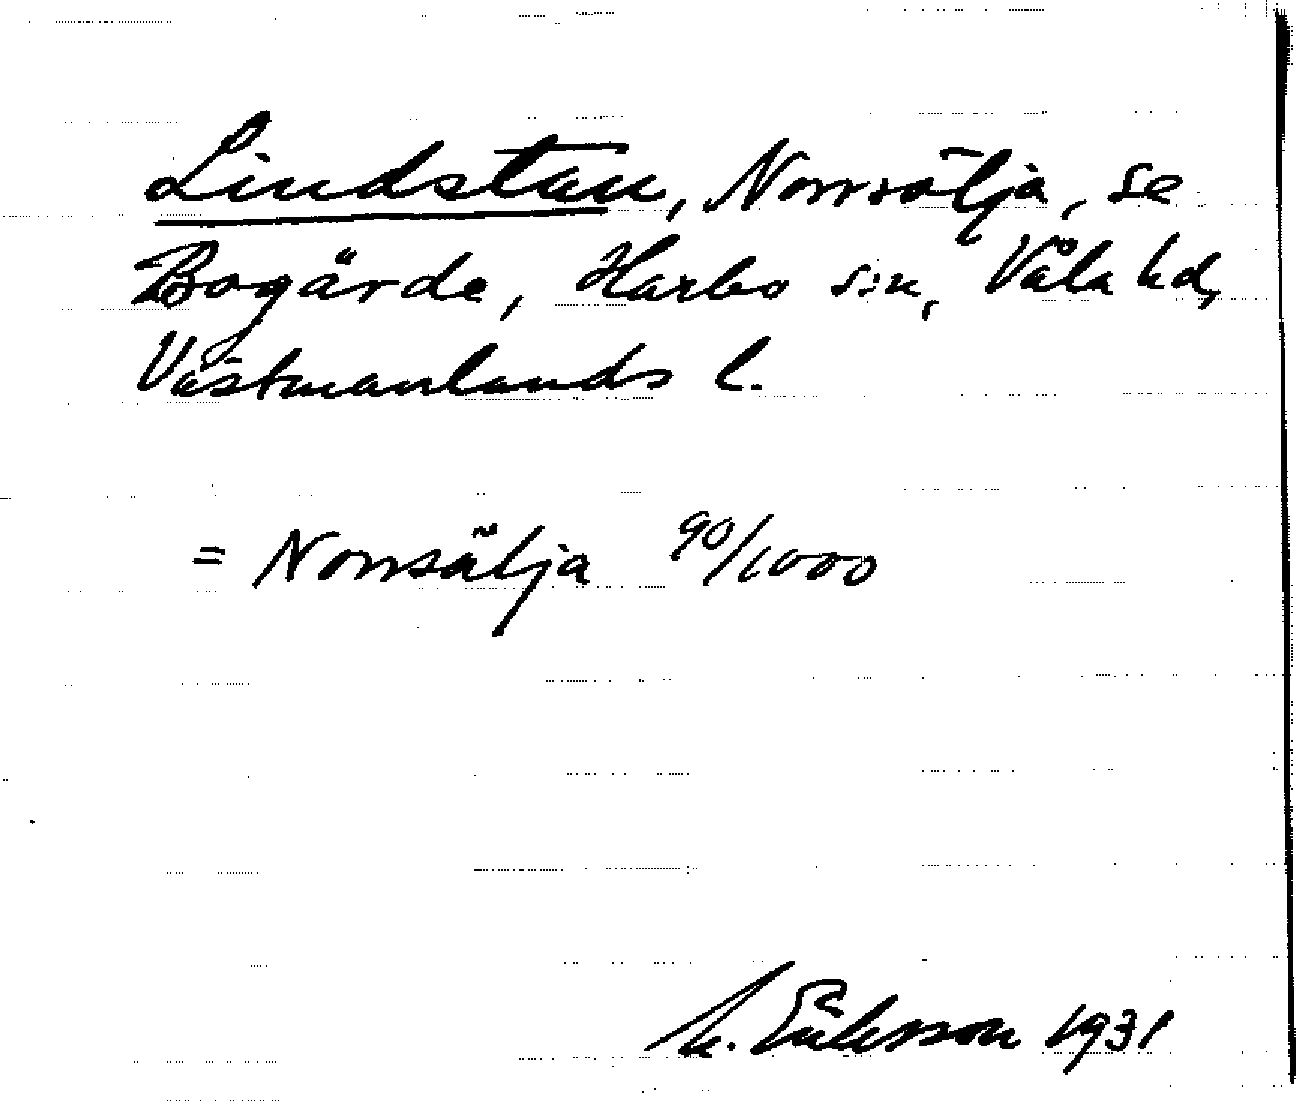 Lindstan, Norrsälja, se
Bogärde, Harbo s:n, Våla hd,
Västmanlands l.
= Norrsälja 90/1000
M. Eriksson 1931